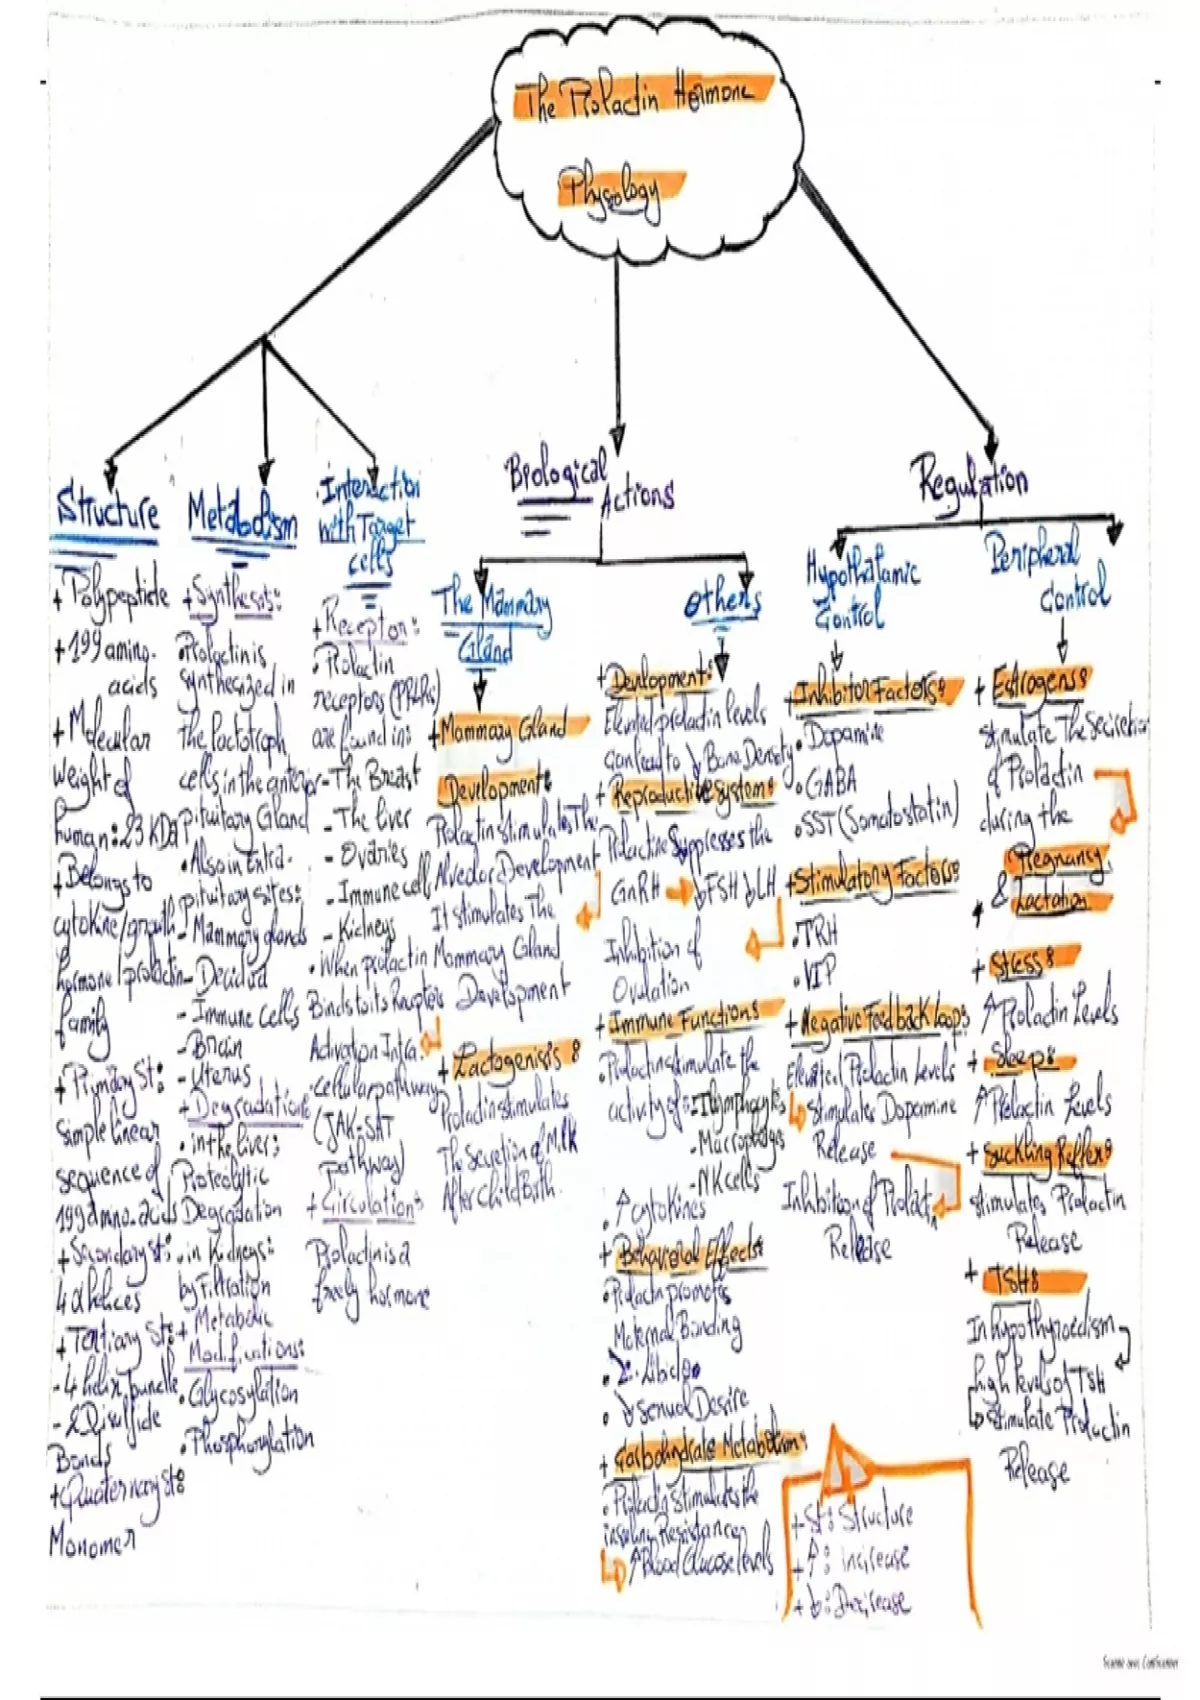 The Prolactin Hormone
Physiology
Structure
+ Polypeptide
+ 199 amino-
acids
+ Molecular
Weight of
human: 23 KDa
+ Belongs to
cytokine/growth
hormone/prolactin
family
+ Primary St:
Simple linear
sequence of
199 amino-acids
+ Secondary St:
4 α helices
+ Tertiary St:
- 4 helix bundle
- 2 Disulfide
Bonds
+ Quaternary St:
Monomer
Metabolism
+ Synthesis:
• Prolactin is
Synthesized in
The lactotroph
cells in the anterior
Pituitary Gland
• Also in Extra-
pituitary sites:
- Mammary glands
- Decidua
- Immune Cells
- Brain
- Uterus
+ Degradation:
• in the liver:
Proteolytic
Degradation
• in Kidneys:
by Filtration
+ Metabolic
Modifications:
• Glycosylation
• Phosphorylation
Interaction
with Target
cells
+ Receptor:
• Prolactin
receptors (PRLRs)
are found in:
- The Breast
- The liver
- Ovaries
- Immune cell
- Kidneys
• When prolactin
Binds to its Receptors
Activation Intra-
cellular pathway
(JAK-SAT
Pathway)
+ Circulation:
Prolactin is a
freely hormone
Biological
Actions
The Mammary
Gland
+ Mammary Gland
Development:
Prolactin stimulates The
Alveolar Development
It stimulates The
Mammary Gland
Development
+ Lactogenisis:
Prolactin stimulates
The Secretion of Milk
After Child Birth.
Others
+ Development:
Elevated prolactin levels
Can lead to ↓ Bone Density
+ Reproductive System:
Prolactine Suppresses the
GnRH → ↓FSH ↓LH
Inhibition of
Ovulation
+ Immune Functions
• Prolactin stimulate the
activity of: - T lymphocytes
- Macrophages
- NK cells
• ↑ cytokines
+ Behavioral Effects:
• Prolactin promotes
Maternal Bonding
• ↓ Libido
• ↓ Sexual Desire
+ Carbohydrate Metabolism:
• Prolactin Stimulates the
insulin Resistance
↑ Blood Glucose levels
Regulation
Hypothalamic
Control
+ Inhibitor Factors:
• Dopamine
• GABA
• SST (Somatostatin)
+ Stimulatory Factors:
• TRH
• VIP
+ Negative Feedback Loop:
Elevated Prolactin Levels
Stimulates Dopamine
Release
Inhibition of Prolact.
Release
Peripheral
Control
+ Estrogens:
Stimulate The Secretion
of Prolactin
during the
Pregnancy
& Lactation
+ Stress:
↑ Prolactin Levels
+ Sleep:
↑ Prolactin Levels
+ Suckling Reflex:
Stimulates Prolactin
Release
+ TSH:
In hypothyroidism
high levels of TSH
Stimulate Prolactin
Release
+ St: Structure
+ ↑: increase
+ ↓: Decrease